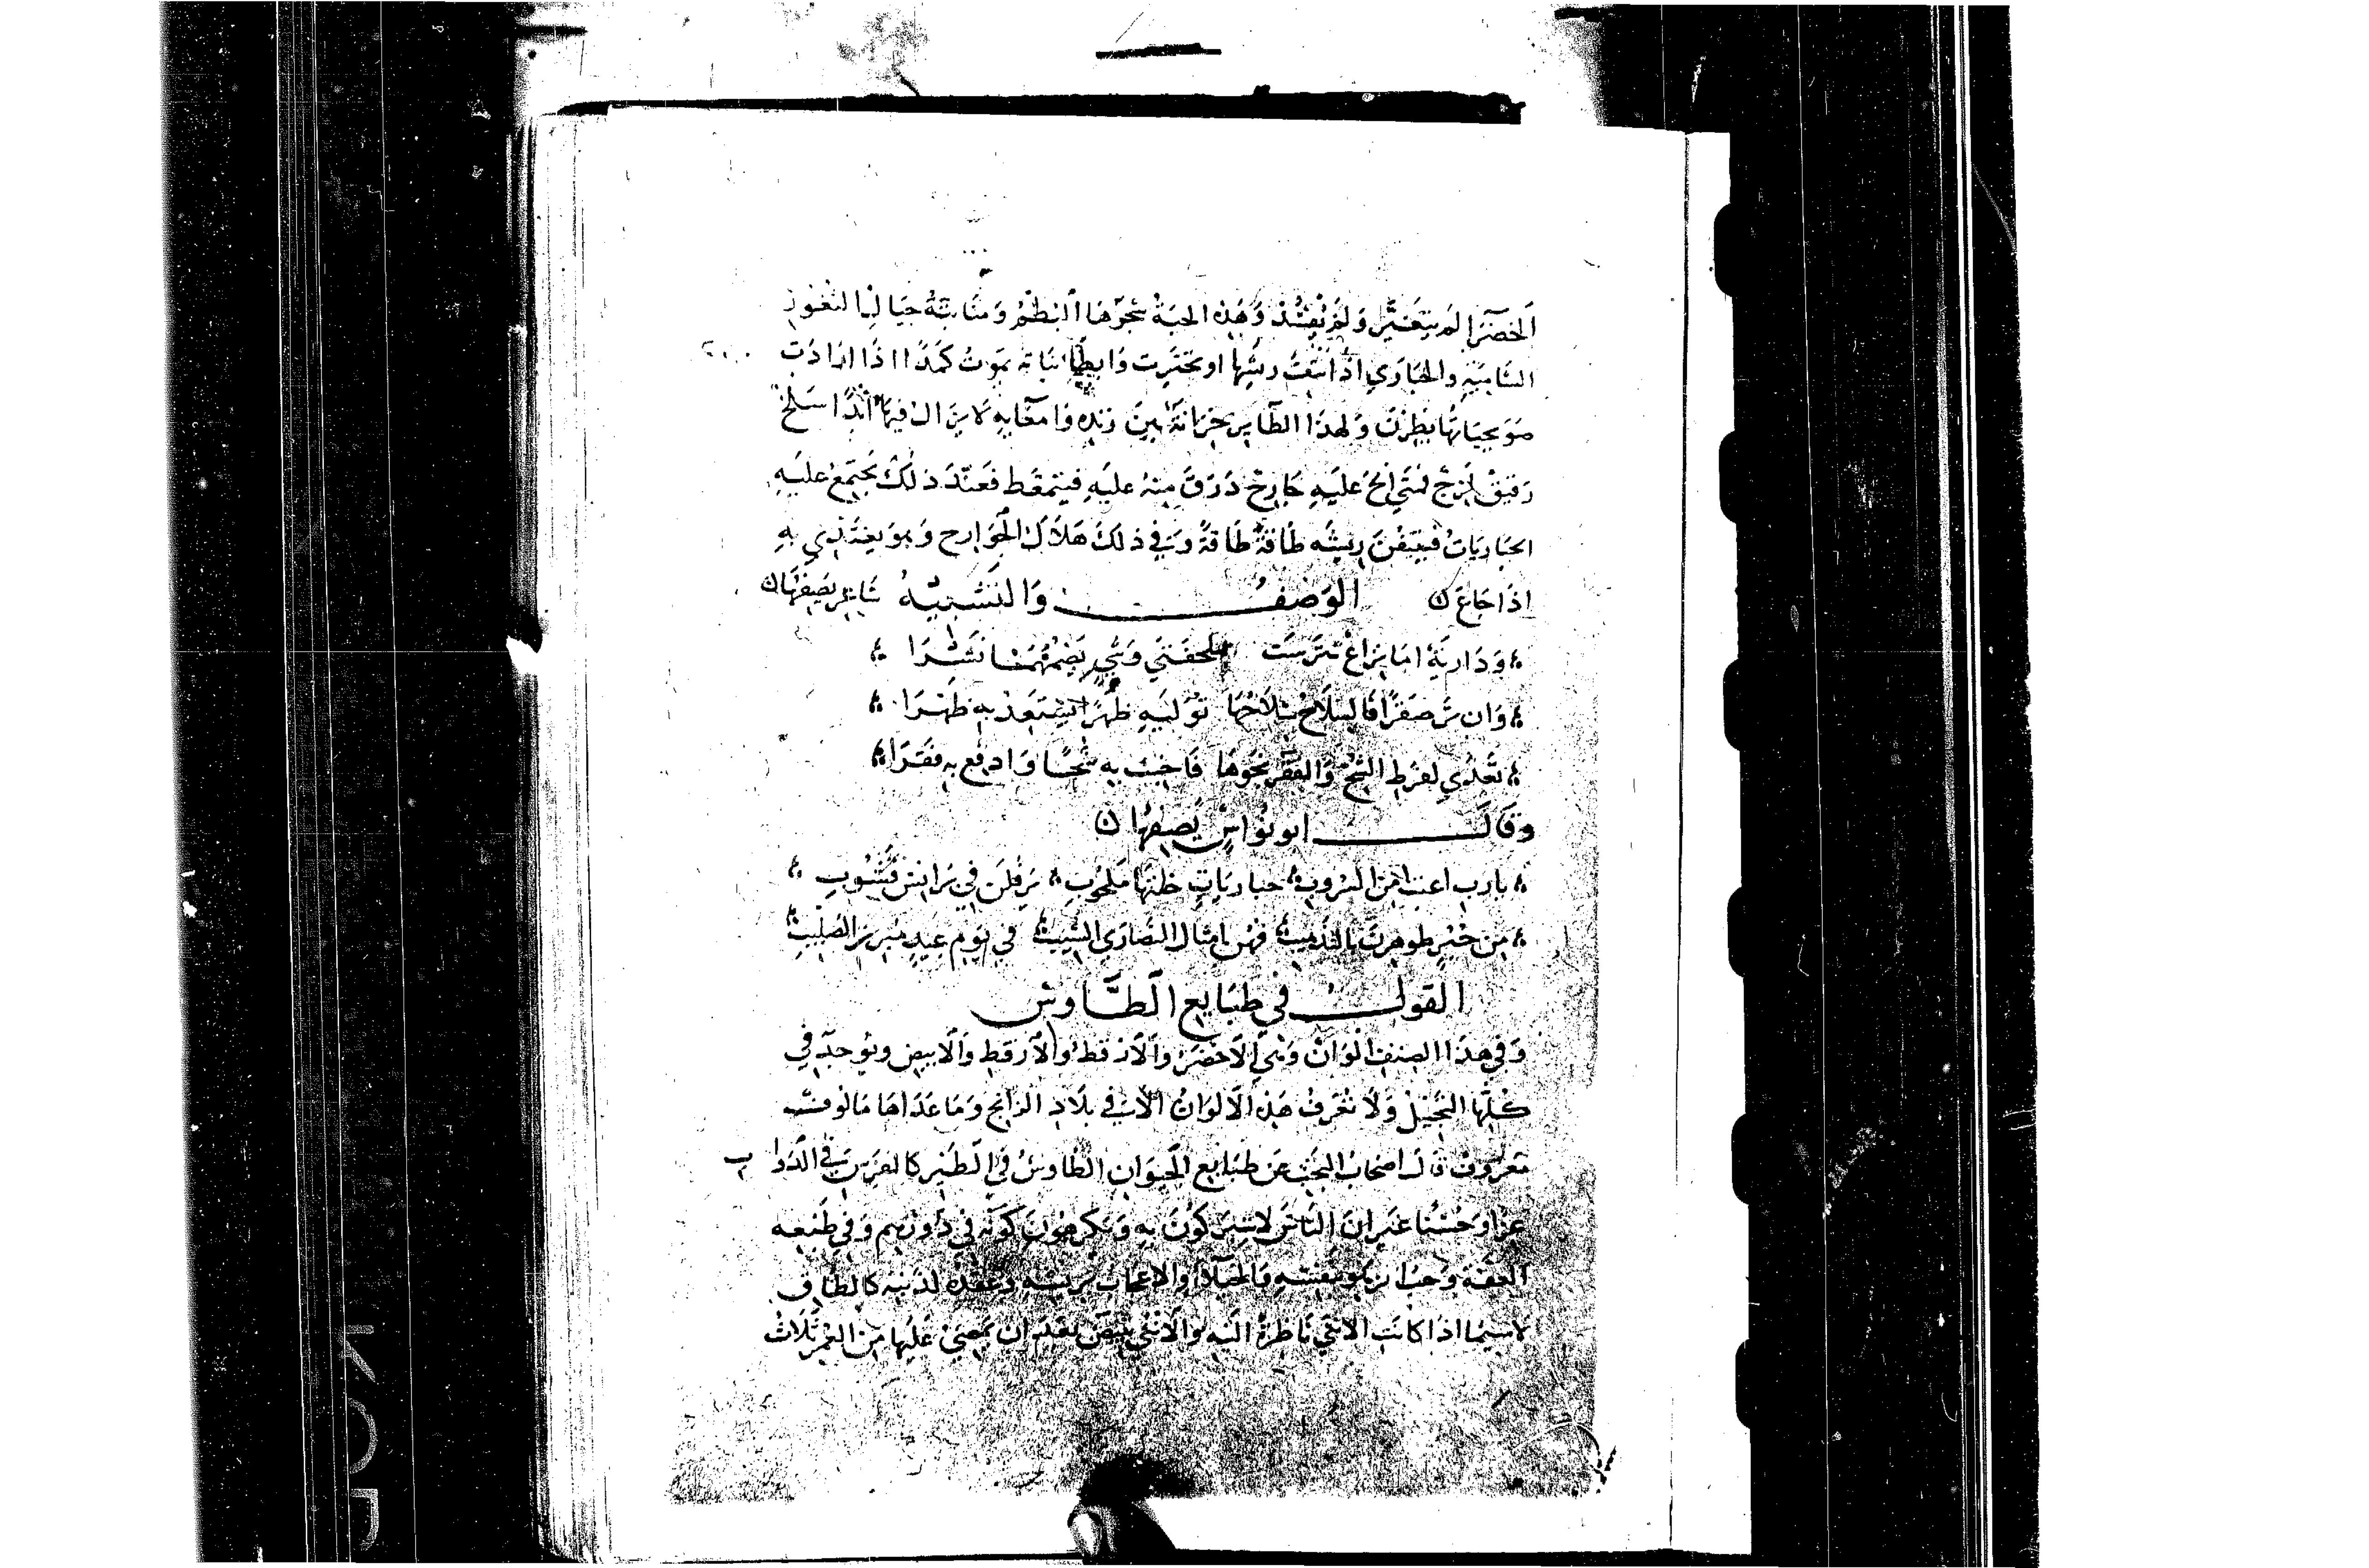 الخضرا لم يتغير ولم يفسد وهذه الحبة شجرها البطم ومنابته جبال الثغور
الشامية والحبارى اذا نتف ريشها او تحسرت وابطا نباته تموت كمدا اذا ارادت
صويحباتها يطرن ولهذا الطاير خزانة بين زبده وامعايه لا يزال فيها ابدا سلح
رقيق لزج فمتى الح عليه جارح ذرق منه عليه فيتمعط فعند ذلك يجتمع عليه
الحباريات فينتفن ريشه طاقة طاقة وفي ذلك هلاك الجوارح وهو يغتذي به
اذا جاع الوصف والتشبيه شاعر يصفها
وان تر صقرا فالسلاح سلاحها توليه ظهرا تستعد به ظهرا
وقال ابو نواس يصفها
حباريات ملحوب يرفلن في برانس قشوب
من حبر طوهرت بالتذهيب فهن امثال النصارى الشيب في يوم عيد الصليب
القول في طبايع الطاوس
وفي هذا الصنف الوان وهي الاخضر والارقط والابيض ويوجد في
كلها التخيل ولا تعرف هذه الالوان الا في بلاد الزابج وما عداها مالوف
معروف قال اصحاب البحث عن طبايع الحيوان الطاوس في الطير كالفرس في الدواب
عزا وحسنا غير ان الناس لا يتبركون به ويكرهون كونه في دورهم وفي طبعه
العفة وحب الزهو بنفسه والخيلاء والاعجاب بريشه وعقده لذنبه كالطاق
لا سيما اذا كانت الانثى ناظرة اليه والانثى تبيض بعد ان يمضي عليها من العمر ثلاث